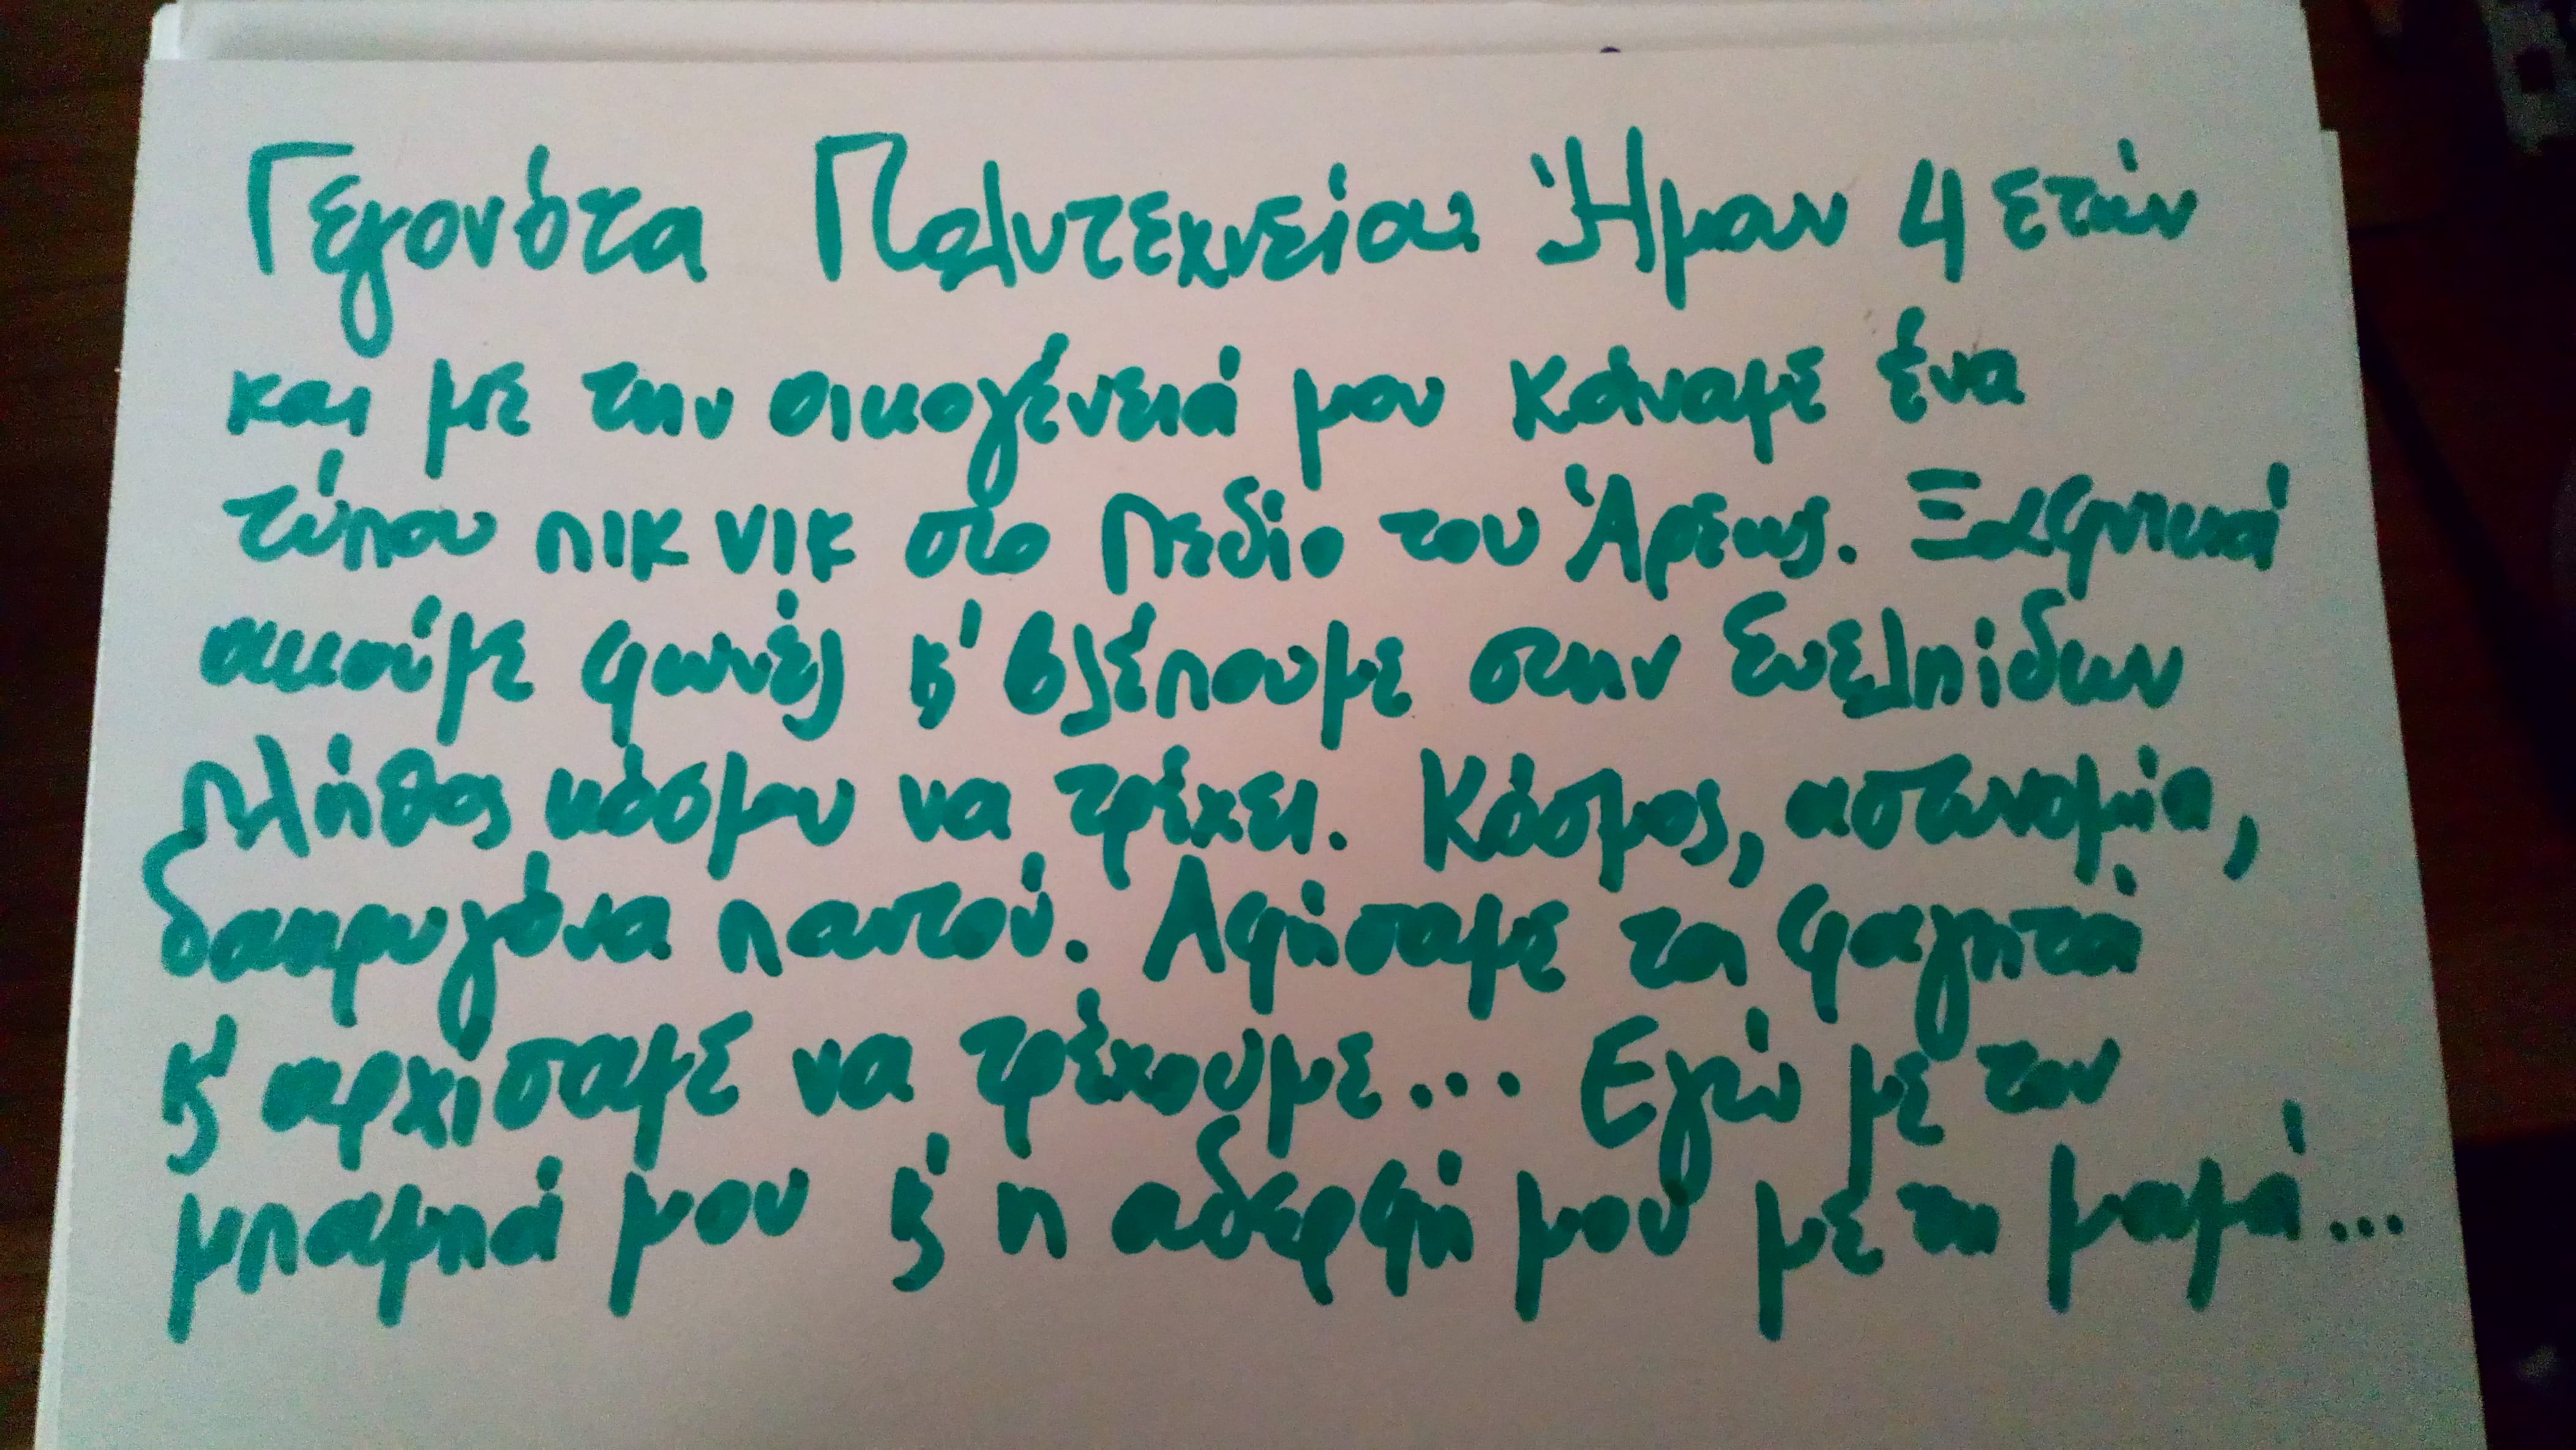 Γεγονότα Πολυτεχνείου Ήμαν 4 ετών
και με την οικογένειά μου κάναμε ένα
τύπου πικ νικ στο Πεδίο του Άρεως. Ξαφνικά
ακούμε φωνές κ' βλέπουμε στην Ευελπίδων
πλήθος κόσμου να τρέχει. Κόσμος, αστυνομία,
δακρυγόνα παντού. Αφήσαμε τα φαγητά
κ' αρχίσαμε να τρέχουμε... Εγώ με τον
μπαμπά μου κ' η αδερφή μου με τη μαμά...